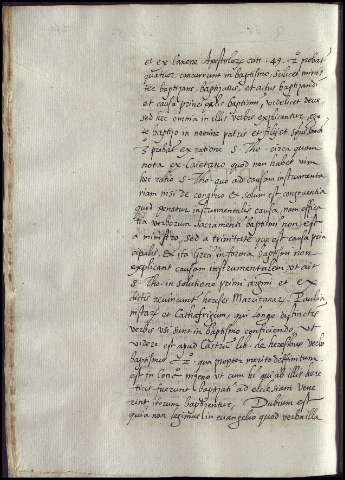 et ex Canone Apostolorū can. 49. 2° probat
quatuor concurrunt in baptismo, scilicet minis
ter baptizans, baptizatus, et actus baptizandi
et causa principalis baptismi, videlicet deus
sed hec omnia in illis verbis explicantur, ergo
te baptizo in nomine patris et filij et spūs sancti
3° probat ex ratione s. Tho. circa quam
nota ex Caietano quod non habet vim
hec ratio s. Tho. quo ad causam instrumenta
riam nisi de congruo et solum est congruentia
quod ponatur instrumentalis causa, nam effica
tia verborum sacramenti baptismi non est
a ministro, sed a trinitate que est causa prin
cipalis, et ita Greci in forma baptismi non
explicant causam instrumentalem ut ait
s. Tho. in solutione primi argmi et ex
dictis convincunt hereses
et qui longe distinctis
verbis usi sunt in baptismo conficiendo, ut
videre est apud Castrum lib. de heresibus verbo
baptismus qua propter merito definitum
est in Conc. niceno ut cum hi qui ab illis here
ticis fuerunt baptizati ad eclesiam vene
rint iterum baptizentur, Dubium est
quia non legimus in evangelio quod verba illa